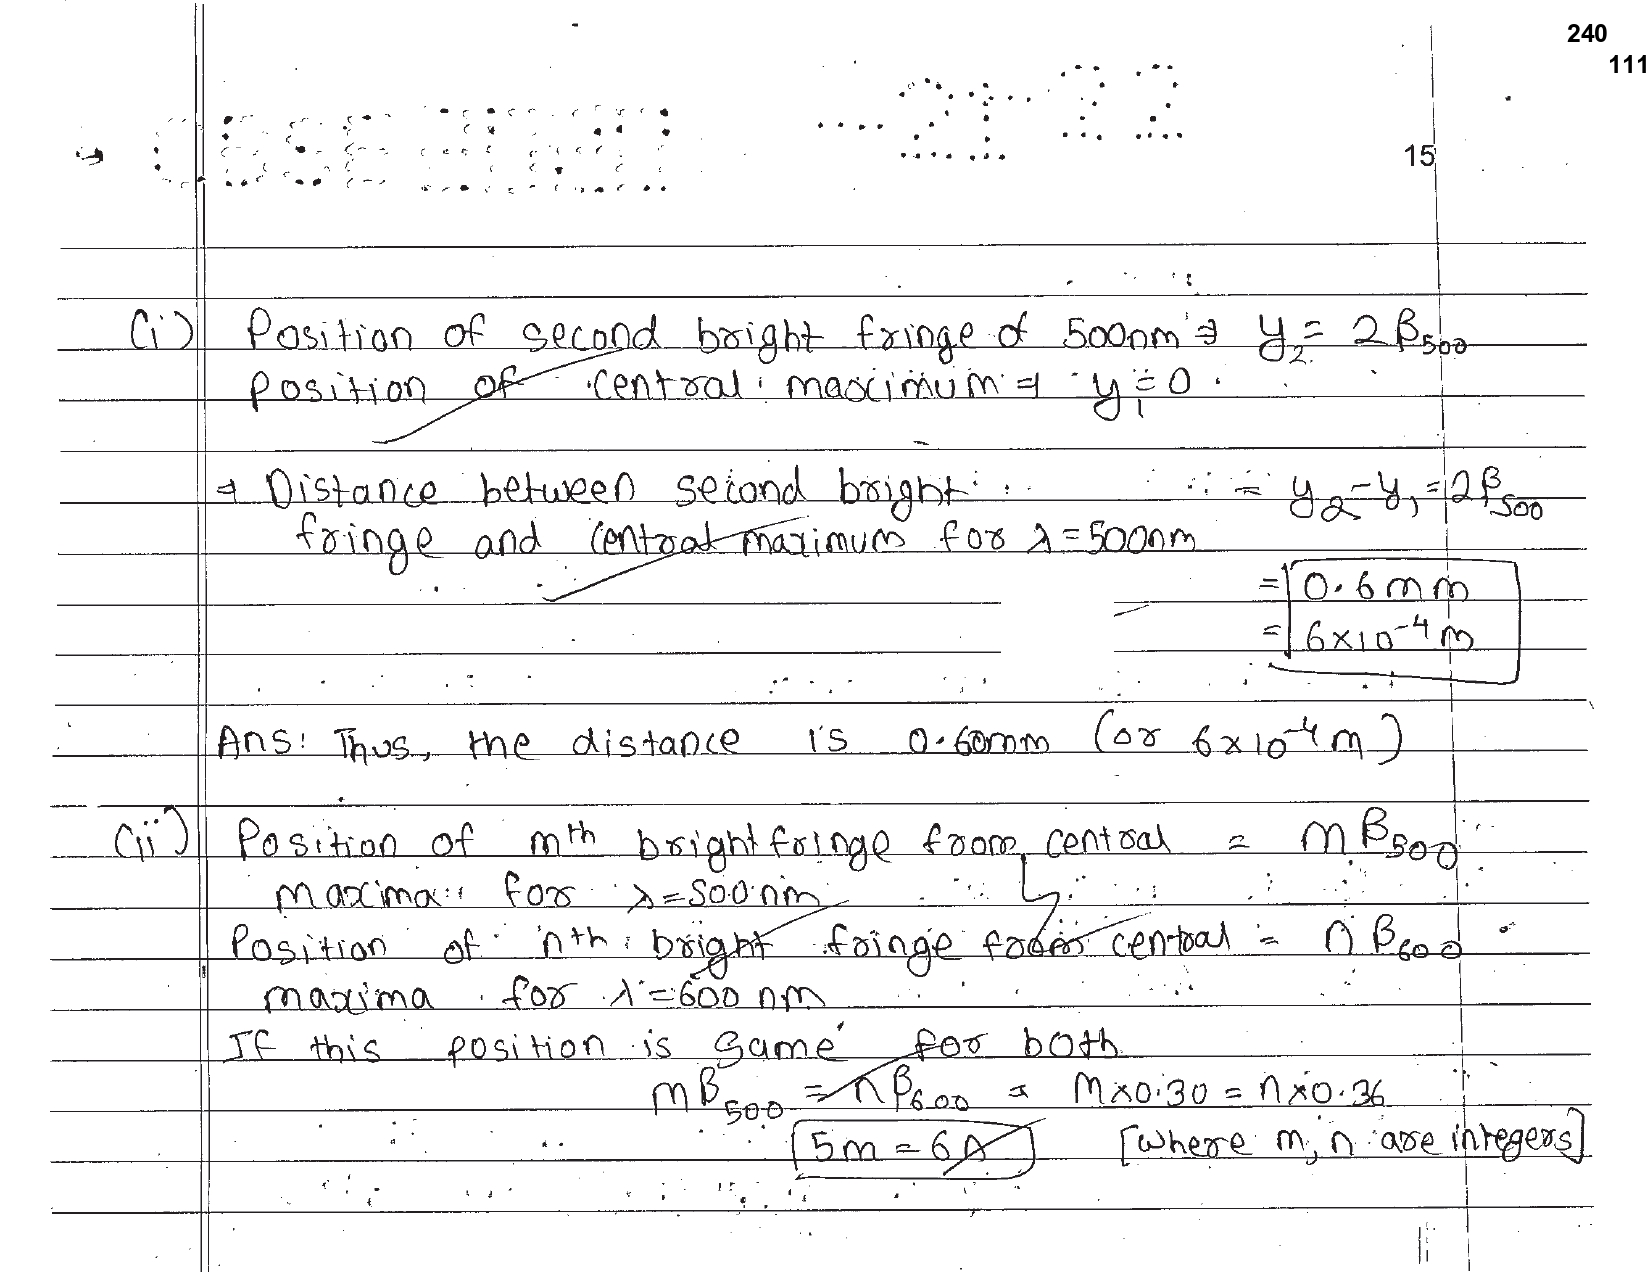 240
111
15
(i) Position of second bright fringe of 500nm ⇒ y₂ = 2β₅₀₀
Position of central maximum ⇒ y₁ = 0
⇒ Distance between second bright = y₂ - y₁ = 2β₅₀₀
fringe and central maximum for λ = 500nm
= 0.6mm
= 6×10⁻⁴ m
Ans: Thus, the distance is 0.60mm (or 6×10⁻⁴ m)
(ii) Position of mth bright fringe from central = mβ₅₀₀
maxima for λ=500nm
Position of nth bright fringe from central = nβ₆₀₀
maxima for λ=600 nm
If this position is same for both
mβ₅₀₀ = nβ₆₀₀ ⇒ m×0.30 = n×0.36
5m = 6n [where m, n are integers]